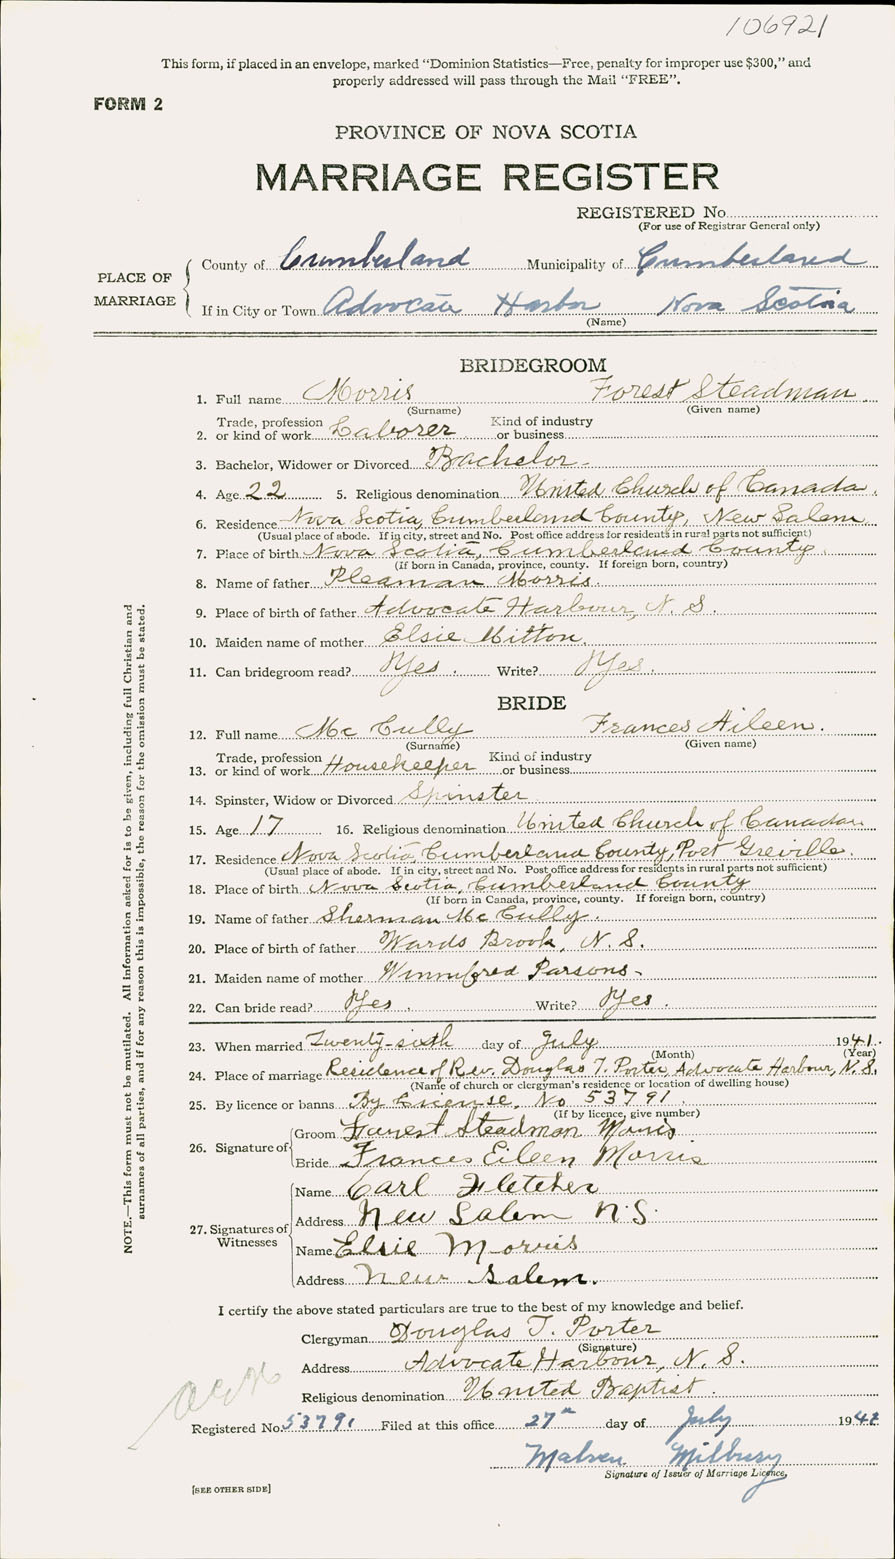 106921
This form, if placed in an envelope, marked “Dominion Statistics—Free, penalty for improper use $300,” and
properly addressed will pass through the Mail “FREE”.
FORM 2
PROVINCE OF NOVA SCOTIA
MARRIAGE REGISTER
REGISTERED No.
(For use of Registrar General only)
PLACE OF MARRIAGE
County of Cumberland Municipality of Cumberland
If in City or Town Advocate Harbor Nova Scotia
(Name)
BRIDEGROOM
1. Full name Morris Forest Steadman
(Surname) (Given name)
2. Trade, profession or kind of work Laborer Kind of industry or business
3. Bachelor, Widower or Divorced Bachelor-
4. Age 22 5. Religious denomination United Church of Canada.
6. Residence Nova Scotia, Cumberland County, New Salem
(Usual place of abode. If in city, street and No. Post office address for residents in rural parts not sufficient)
7. Place of birth Nova Scotia, Cumberland County.
(If born in Canada, province, county. If foreign born, country)
8. Name of father Pleaman Morris.
9. Place of birth of father Advocate Harbour, N. S.
10. Maiden name of mother Elsie Mitton.
11. Can bridegroom read? Yes. Write? Yes.
BRIDE
12. Full name Mc Cully Frances Aileen.
(Surname) (Given name)
13. Trade, profession or kind of work Housekeeper Kind of industry or business
14. Spinster, Widow or Divorced Spinster
15. Age 17 16. Religious denomination United Church of Canada
17. Residence Nova Scotia, Cumberland County, Port Greville.
(Usual place of abode. If in city, street and No. Post office address for residents in rural parts not sufficient)
18. Place of birth Nova Scotia, Cumberland County
(If born in Canada, province, county. If foreign born, country)
19. Name of father Sherman Mc Cully.
20. Place of birth of father Wards Brook, N. S.
21. Maiden name of mother Winnifred Parsons-
22. Can bride read? Yes. Write? Yes.
23. When married Twenty-sixth day of July 1941.
(Month) (Year)
24. Place of marriage Residence of Rev. Douglas T. Porter, Advocate Harbour, N. S.
(Name of church or clergyman's residence or location of dwelling house)
25. By licence or banns By License, No 53791.
(If by licence, give number)
26. Signature of
Groom Forrest Steadman Morris
Bride Frances Eileen Morris
27. Signatures of Witnesses
Name Carl Fletcher
Address New Salem N.S.
Name Elsie Morris
Address New Salem.
I certify the above stated particulars are true to the best of my knowledge and belief.
Clergyman Douglas T. Porter
(Signature)
Address Advocate Harbour, N. S.
Religious denomination United Baptist.
Registered No. 53791 Filed at this office 27th day of July 194
Milbury
Signature of Issuer of Marriage Licence,
[SEE OTHER SIDE]
NOTE.—This form must not be mutilated. All information asked for is to be given, including full Christian and
surnames of all parties, and if for any reason this is impossible, the reason for the omission must be stated.